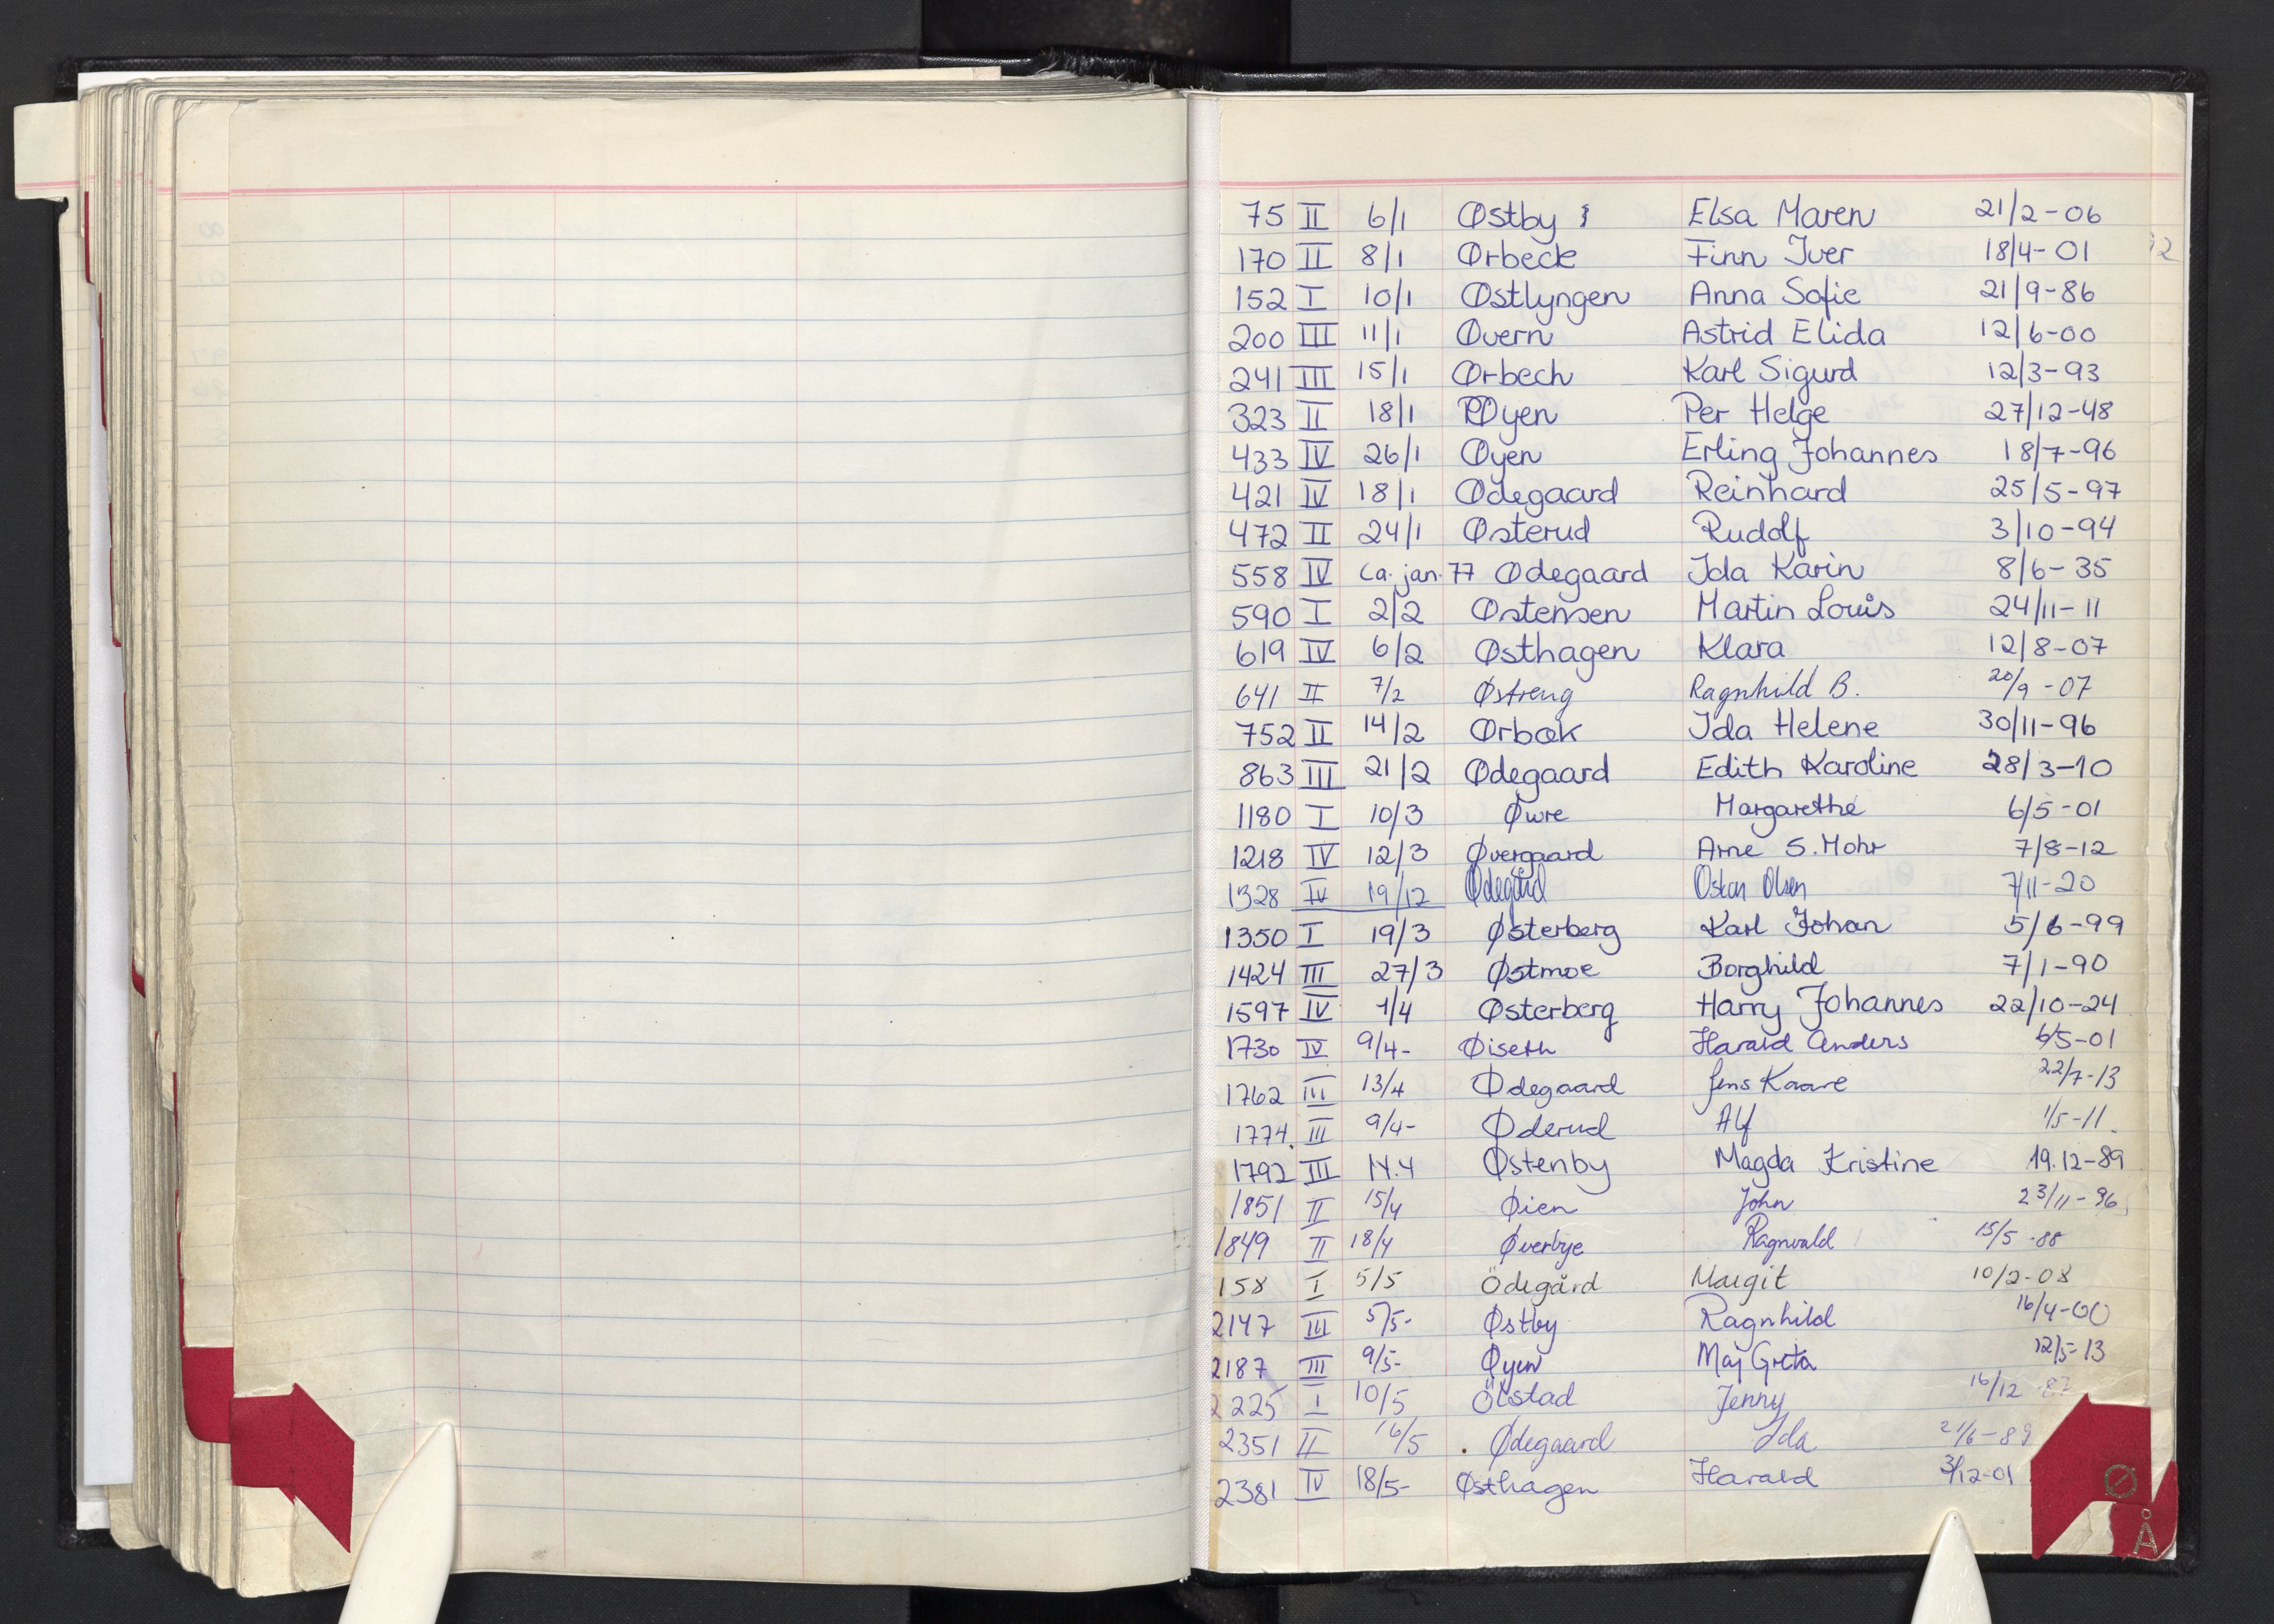 75 II 6/1 Østby Elsa Maren 21/2-06
170 II 8/1 Ørbeck Finn Iver 18/4-01
152 I 10/1 Østlyngen Anna Sofie 21/9-86
200 III 11/1 Øvern Astrid Elida 12/6-00
241 III 15/1 Ørbech Karl Sigurd 12/3-93
323 II 18/1 Øyen Per Helge 27/12-48
433 IV 26/1 Øyen Erling Johannes 18/7-96
421 IV 18/1 Ødegaard Reinhard 25/5-97
472 II 24/1 Østerud Rudolf 3/10-94
558 IV ca. jan. 77 Ødegaard Ida Karin 8/6-35
590 I 2/2 Østensen Martin Louis 24/11-11
619 IV 6/2 Østhagen Klara 12/8-07
641 II 7/2 Østreng Ragnhild B. 20/9-07
752 II 14/2 Ørbæk Ida Helene 30/11-96
863 III 21/2 Ødegaard Edith Karoline 28/3-10
1180 I 10/3 Øwre Margarethe 6/5-01
1218 IV 12/3 Øvergaard Arne S. Mohr 7/8-12
1328 IV 19/12 Ødegård Oskar Olsen 7/11-20
1350 I 19/3 Østerberg Karl Johan 5/6-99
1424 III 27/3 Østmoe Borghild 7/1-90
1597 IV 1/4 Østerberg Harry Johannes 22/10-24
1730 IV 9/4- Øiseth Harald Anders 6/5-01
1762 III 13/4 Ødegaard Jens Kaare 22/7-13
1774. III 9/4- Øderud Alf 1/5-11.
1792 III 14.4 Østenby Magda Kristine 19.12-89
1851 II 15/4 Øien John 23/11-96
1849 II 18/4 Øverbye Ragnvald 15/5-88
158 I 5/5 Ödegård Margit 10/2-08
2147 III 5/5- Østby Ragnhild 16/4-00
2187 III 9/5- Øyen Maj Greta 12/5-13
2225 I 10/5 Ölstad Jenny 16/12-87
2351 II 16/5 Ødegaard Ida 21/6-89
2381 IV 18/5- Østhagen Harald 3/12-01
Ø
Å